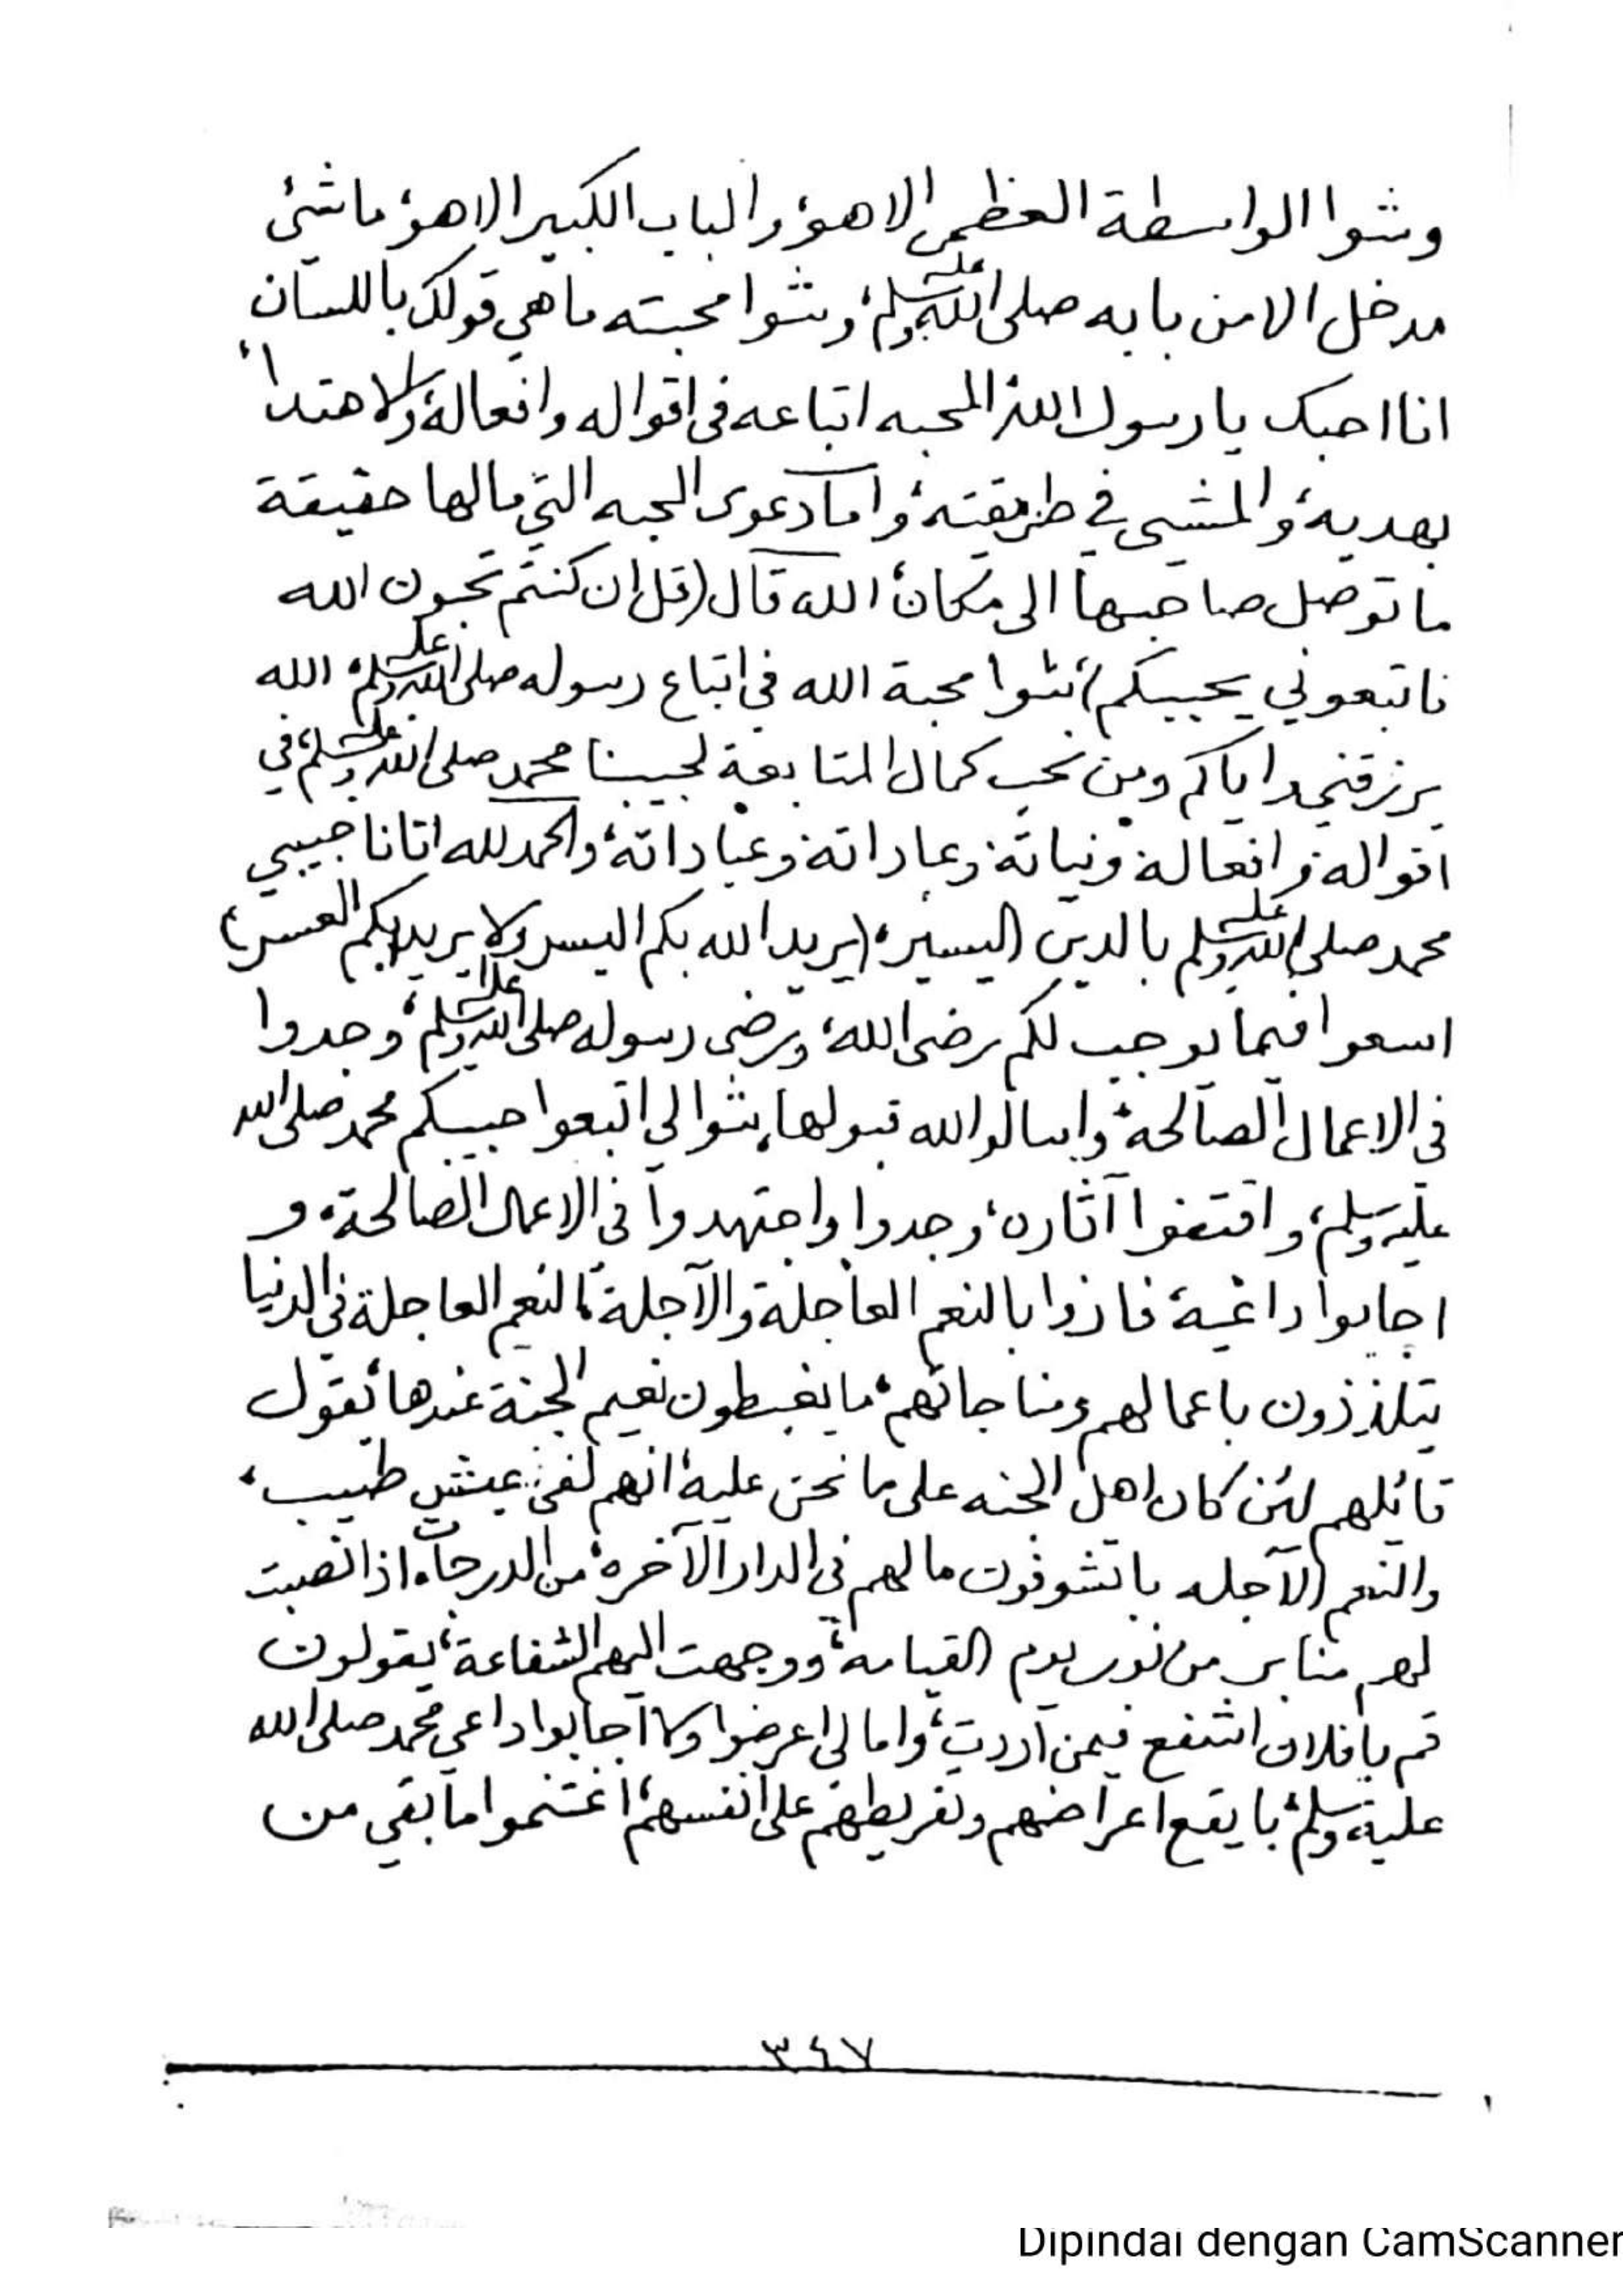 وشوا الواسطة العظمى الاهو، والباب الكبير الاهو، ماشي
مدخل الا من بابه صلى الله عليه وسلم، وشوا محبته ما هي قولك باللسان
انا احبك يا رسول الله، المحبه اتباعه في اقواله وافعاله، والاهتداء
بهديه، والمشي في طريقته، واما دعوى المحبه التي مالها حقيقة
ما توصل صاحبها الى مكان، الله قال (قل ان كنتم تحبون الله
فاتبعوني يحببكم) شوا محبة الله في اتباع رسوله صلى الله عليه وسلم، الله
يرزقني واياكم ومن نحب كمال المتابعة لحبيبنا محمد صلى الله عليه وسلم، في
اقواله، وافعاله، ونياته، وعاداته، وعباداته، والحمدلله اتانا حبيبي
محمد صلى الله عليه وسلم بالدين اليسير، (يريد الله بكم اليسر ولا يريد بكم العسر)
اسعوا فيما يوجب لكم رضى الله، ورضى رسوله صلى الله عليه وسلم، وجدوا
في الاعمال الصالحة، واسالوا الله قبولها، شوا لي اتبعوا حبيبكم محمد صلى الله
عليه وسلم، واقتفوا آثاره، وجدوا واجتهدوا في الاعمال الصالحة، و
اجابوا داعيه، فازوا بالنعم العاجلة والآجلة، النعم العاجلة في الدنيا
يتلذذون باعمالهم ومناجاتهم، ما يغبطون نعيم الجنة عندها، يقول
قائلهم لئن كان اهل الجنه على ما نحن عليه، انهم لفي عيش طيب،
والنعم الآجله باتشوفون مالهم في الدار الآخره، من الدرجات، اذا نصبت
لهم منابر من نور يوم القيامه، ووجهت اليهم الشفاعة، يقولون
قم يا فلان اشفع فيمن اردت، واما لي اعرضوا ولا اجابوا داعي محمد صلى الله
عليه وسلم، با يقع اعراضهم وتفريطهم على انفسهم، اغتنموا ما بقي من
٣٤٧
Dipindai dengan CamScanner